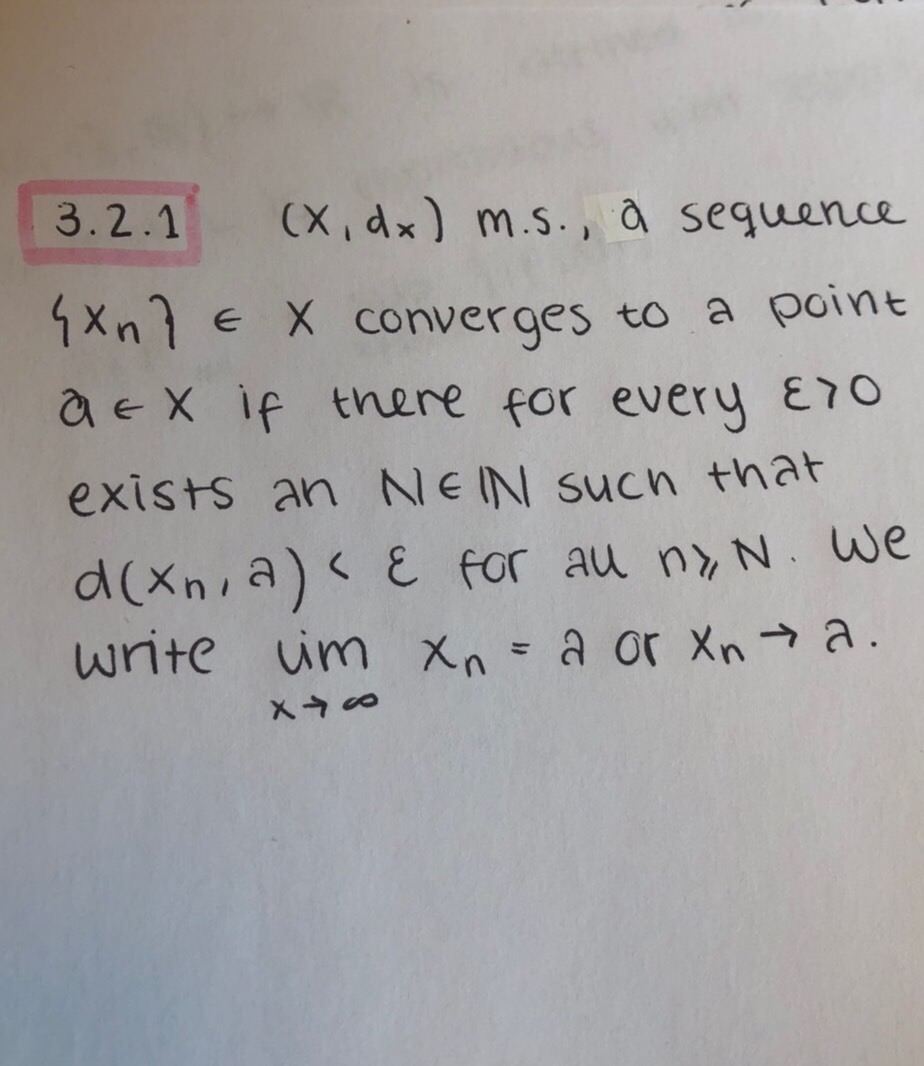 3.2.1 (X, dₓ) m.s., a sequence
{xₙ} ∈ X converges to a point
a ∈ X if there for every ε>0
exists an N∈ℕ such that
d(xₙ, a) < ε for all n⩾N. We
write lim xₙ = a or xₙ → a.
x→∞